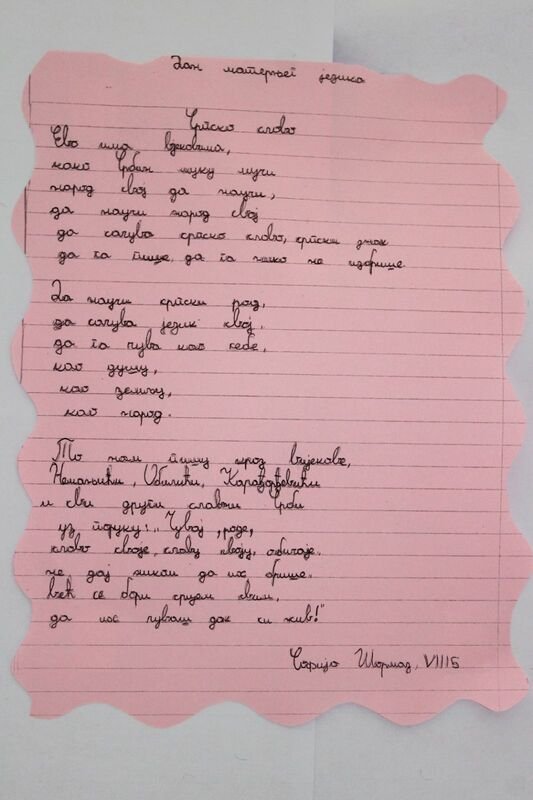 Дан матерњег језика
Српско слово
Ево има вјековима,
како Србин муку мучи
народ свој да научи,
да научи народ свој
да сачува српско слово, српски знак
да га пише, да га нико не избрише.
Да научи српски род,
да сачува језик свој,
да га чува као себе,
као душу,
као земљу,
као народ.
То нам пишу кроз вијекове,
Немањићи, Обилићи, Карађорђевићи
и сви други славни Срби
уз поруку: „Чувај, роде,
слово своје, славу своју, обичаје.
не дај ником да их брише.
већ се бори срцем свим,
да их чуваш док си жив!"
Софија Шормаз, VIII5